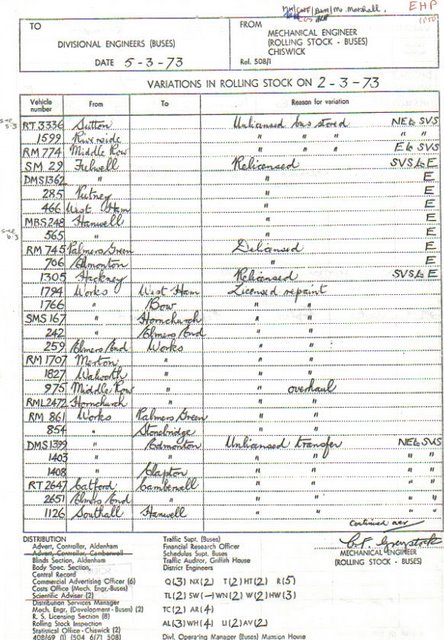 EHP
TO
FROM
DIVISIONAL ENGINEERS (BUSES)
MECHANICAL ENGINEER
(ROLLING STOCK - BUSES)
CHISWICK
DATE 5-3-73
Ref. 508/1
VARIATIONS IN ROLLING STOCK ON 2-3-73
Vehicle number From To Reason for variation
RT 3336 Sutton Unlicensed bus stored NE to SVS
1599 Riverside " " " "
RM 774 Middle Row " " E to SVS
SM 29 Fulwell Relicensed SVS to E
DMS1362 " " E
285 Putney " E
466 West Ham " E
MBS248 Hanwell " E
565 " " E
RM 745 Palmers Green Delicensed E
706 Edmonton " E
1305 Hackney Relicensed SVS to E
1794 Works West Ham Licensed repaint
1766 " Bow " "
SMS 167 " Hornchurch " "
242 " Elmers End " "
259 Elmers End Works " "
RM 1707 Merton " " "
1827 Walworth " " "
975 Middle Row " " overhaul
RML2472 Hornchurch " " "
RM 861 Works Palmers Green " "
854 " Stonebridge " "
DMS1399 " Edmonton Unlicensed transfer NE to SVS
1403 " " " " " "
1408 " Clapton " " " "
RT 2647 Catford Camberwell " " " "
2651 Elmers End " " " " "
1126 Southall Hanwell " " " "
Continued over
DISTRIBUTION
Advert. Controller, Aldenham
Advert. Controller, Camberwell
Blinds Section, Aldenham
Body Spec. Section,
Central Record
Commercial Advertising Officer (6)
Costs Office (Mech. Engr.-Buses)
Scientific Adviser (2)
Distribution Services Manager
Mech. Engr. (Development - Buses) (2)
R. S. Licensing Section (8)
Rolling Stock Inspection
Statistical Office - Chiswick (2)
Traffic Supt. (Buses)
Financial Research Officer
Schedules Supt. Buses
Traffic Auditor, Griffith House
District Engineers
Q(3) NX(2) T(2) HT(2) R(5)
TL(2) SW(-) WN(2) W(2) HW(3)
TC(2) AR(4)
AL(3) WH(4) AV(2)
Divl. Operating Manager (Buses) Mansion House
MECHANICAL ENGINEER
(ROLLING STOCK - BUSES)